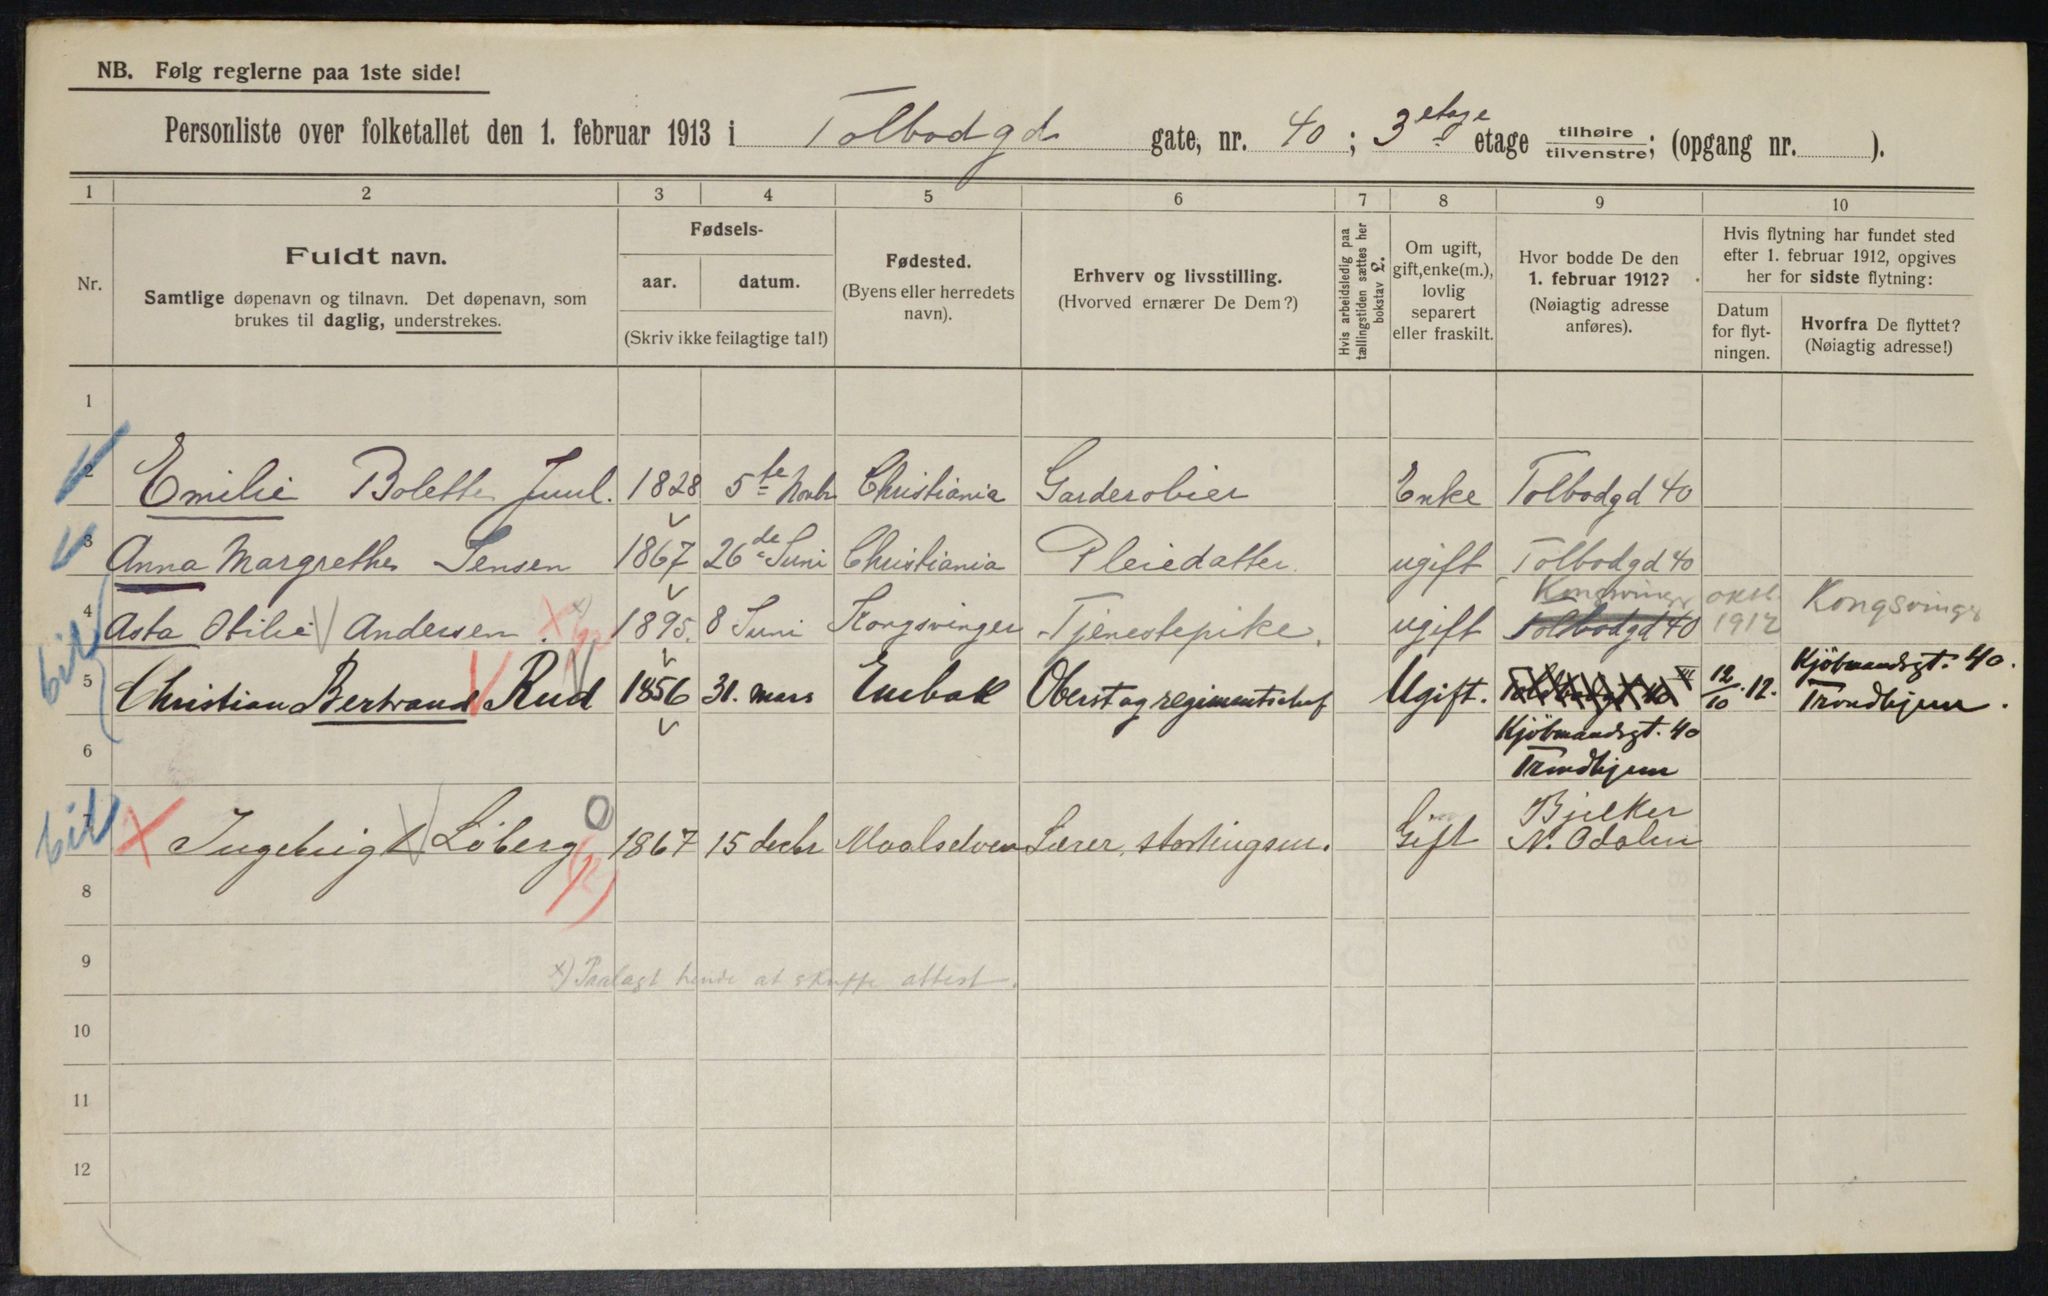 NB. Følg reglerne paa 1ste side!
Personliste over folketallet den 1. februar 1913 i Tolbodgd gate, nr. 40 ; 3 etage etage tilhøire tilvenstre; (opgang nr. ).
1 2 3 4 5 6 7 8 9 10
Nr.
Fuldt navn.
Samtlige døpenavn og tilnavn. Det døpenavn, som
brukes til daglig, understrekes.
Fødsels-
aar. datum.
(Skriv ikke feilagtige tal!)
Fødested.
(Byens eller herredets
navn).
Erhverv og livsstilling.
(Hvorved ernærer De Dem?)
Hvis arbeidsledig paa
tællingstiden sættes her
bokstav L.
Om ugift,
gift, enke(m.),
lovlig
separert
eller fraskilt.
Hvor bodde De den
1. februar 1912?
(Nøiagtig adresse
anføres).
Hvis flytning har fundet sted
efter 1. februar 1912, opgives
her for sidste flytning:
Datum
for flyt-
ningen.
Hvorfra De flyttet?
(Nøiagtig adresse!)
1
2 Emilie Bolette Juul. 1828 5te Novbr Christiania Garderobier Enke Tolbodgd 40
3 Anna Margrethe Jensen 1867 26de Juni Christiania Pleiedatter. ugift Tolbodgd 40
Kongsvinger
4 Asta Otilie Andersen . x) 1895. 8 Juni Kongsvinger Tjenestepike. ugift Tolbodgd 40 oktb. 1912 Kongsvinger
bil
5 Christian Bertrand Rud 1856 31. mars Enebak Oberst og regimentschef Ugift. Toldbodgt 40 III 12/10.12. Kjöbmandsgt. 40.
Trondhjem.
6 Kjöbmandsgt. 40
Trondhjem
bil
7 Ingebrigt Løberg 1867 15 decbr Maalselven Lærer, stortingsm. Gift Bjelker
N. Odalen
8
9 x) Paalagt hende at skaffe attest.
10
11
12